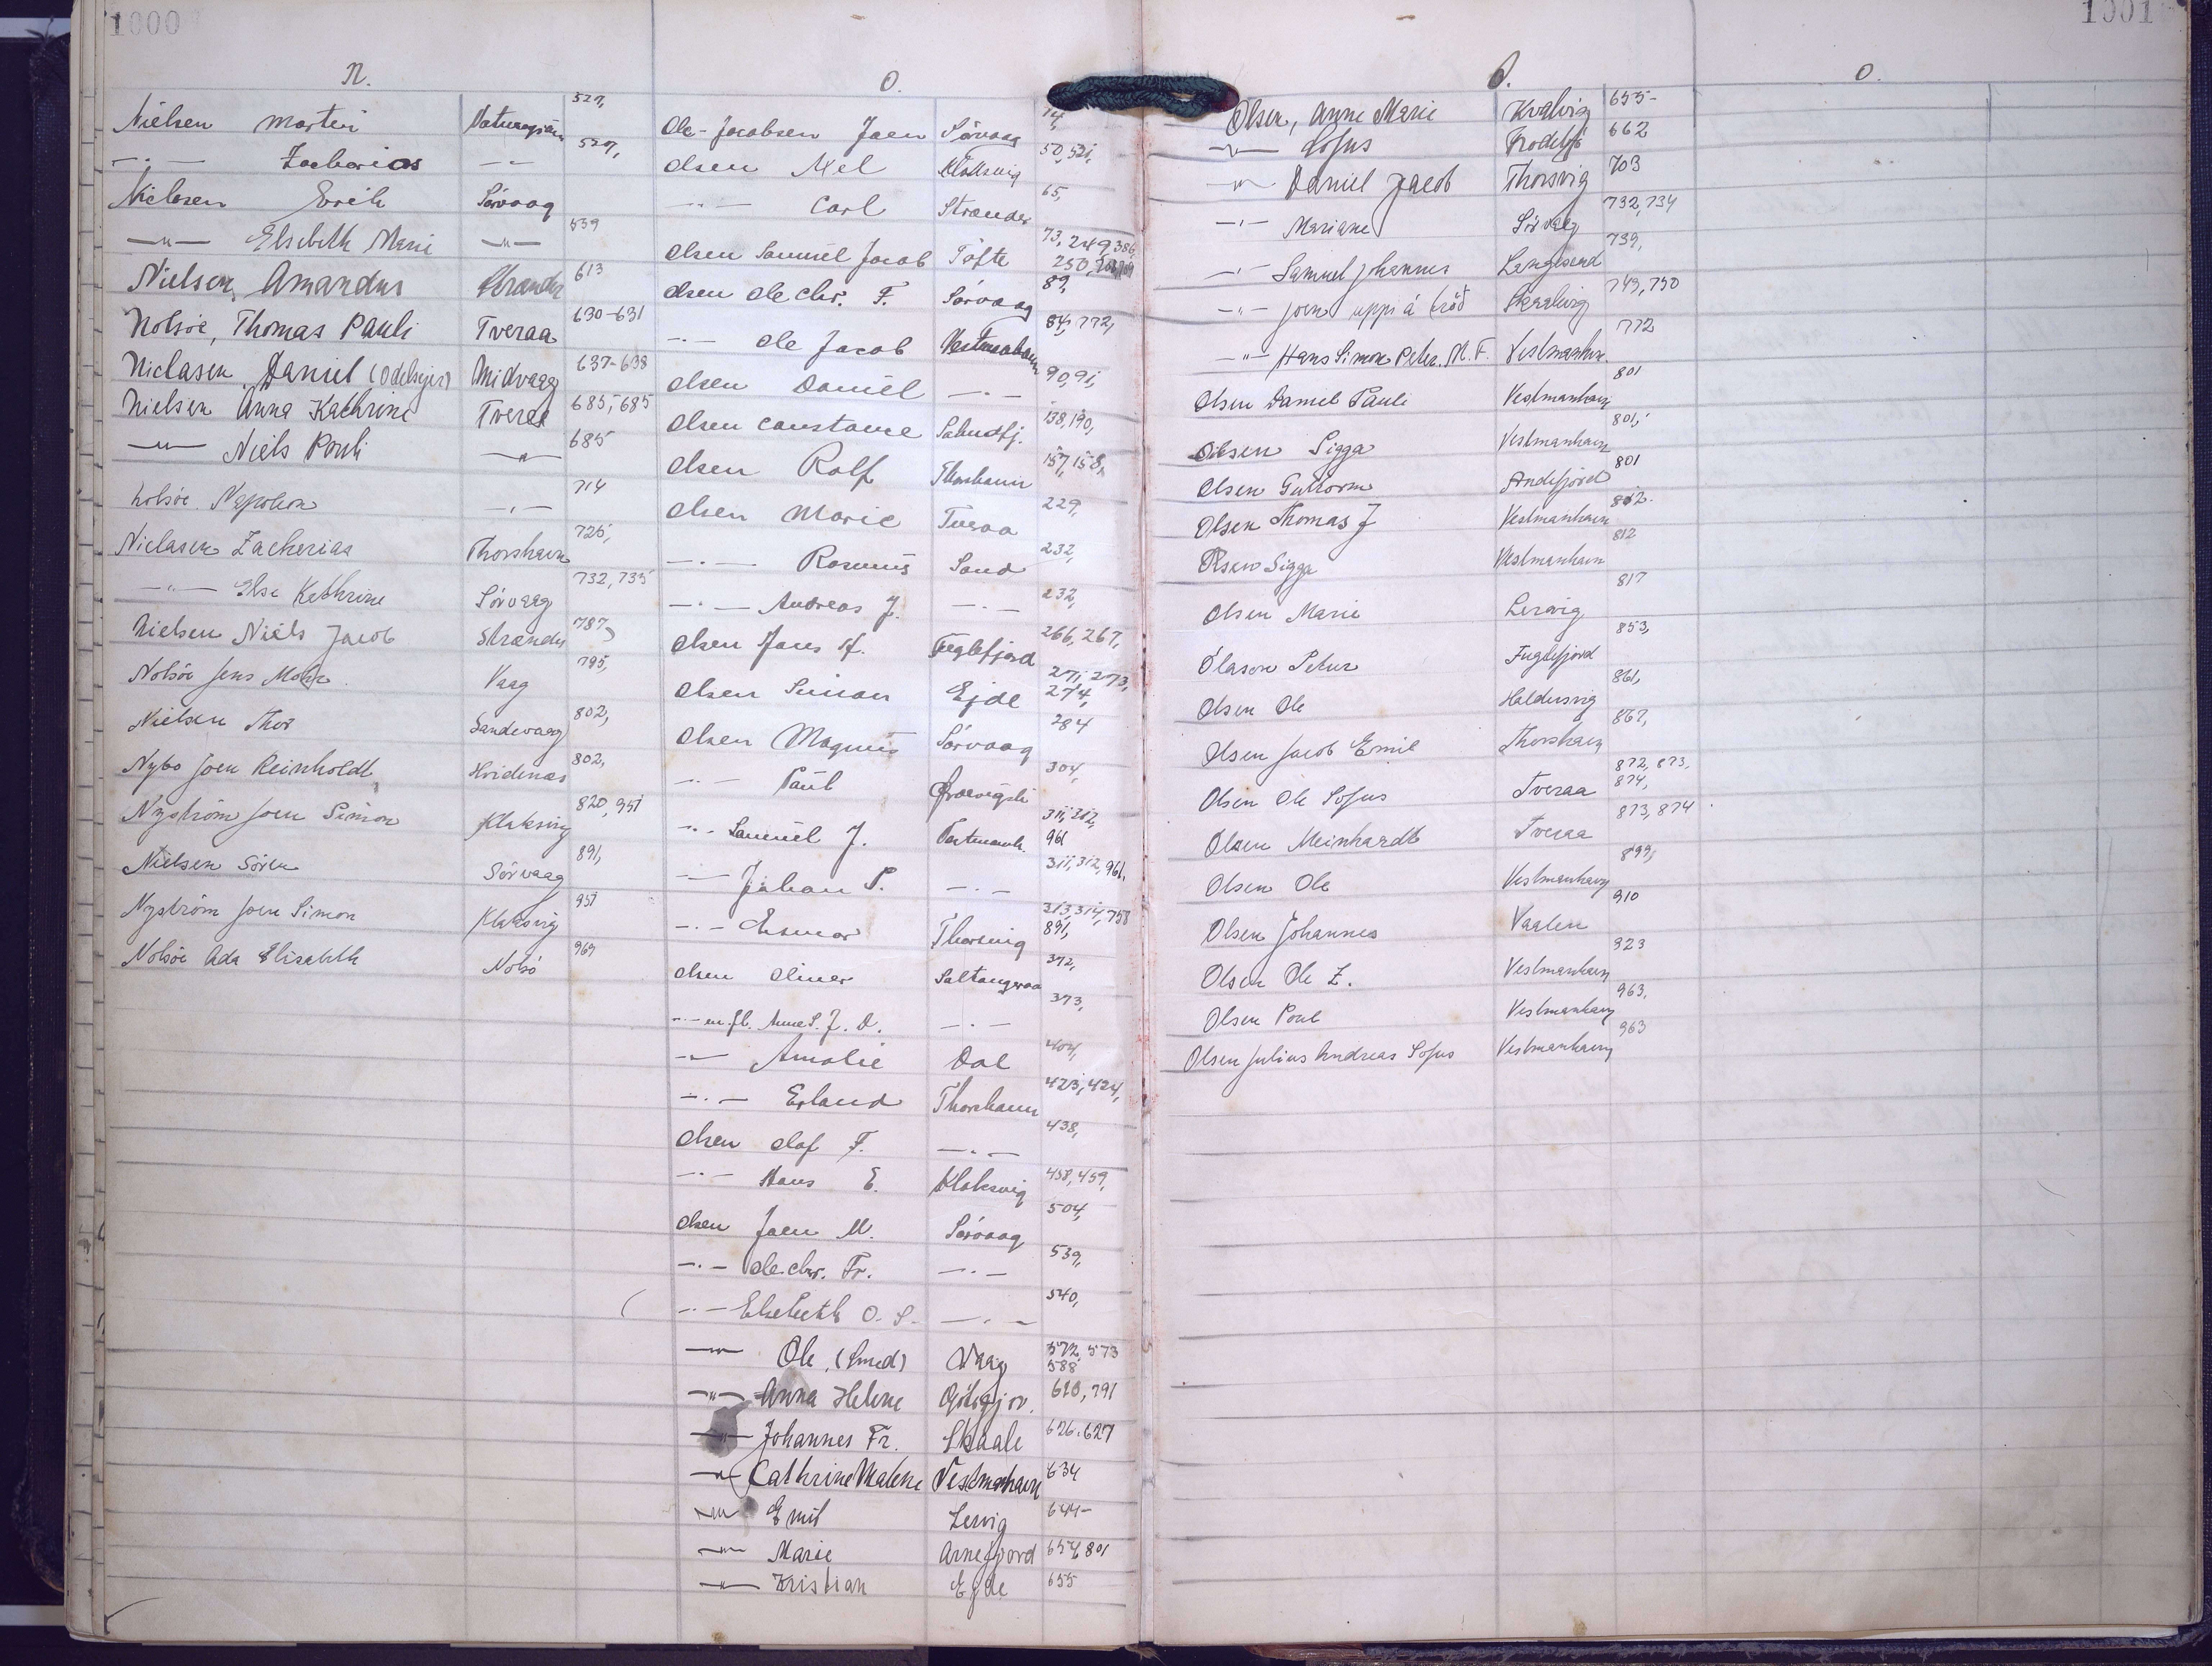 1000
N.
Nielsen Morten 527,
—"— Zacharias — — 527,
Niclasen Erik Sörvaag
—"— Elsebeth Marie —"— 539
Nielsen, Amandus Strænder 613
Nolsöe, Thomas Pauli Tveraa 630-631
Niclasen Daniel (Odelsejer) Midvaag 637-638
Nielsen Anna Kathrine Tveraa 685, 685
—"— Niels Pauli —"— 685
Nolsöe. Napoleon —,— 714
Niclasen Zacherias Thorshavn 725,
—"— Else Kathrine Sörvaag 732, 735
Nielsen Niels Jacob Strænder 787,
Nolsöe Jens Mohr. Vaag 795,
Nielsen Thor Sandevaag 802,
Nybo Joen Reinholdt, Hvidenæs 802,
Nyström Joen Simon Klaksvig 820, 951
Nielsen Sören Sörvaag 891,
Nyström Joen Simon Klaksvig 951
Nolsöe Ada Elisabeth Nolsö 969
O.
Ole-Jacobsen Joen Sörvaag 14,
Olsen Axel Klaksvig 50, 521,
—"— Carl Strænder 65,
Olsen Samuel Jacob Töfte 73, 249, 386, 250,
Olsen Ole Chr. F. Sörvaag 89,
—·— Ole Jacob Vestmanhavn 84, 772,
Olsen Daniel —·— 90, 91,
Olsen Constance Salmdfj. 138, 190,
Olsen Rolf Thorshavn 157, 158,
Olsen Marie Tveraa 229,
—·— Rasmus Sand 232,
—·— Andreas J. —·— 232,
Olsen Hans H. Fuglefjord 266, 267,
Olsen Simon Ejde 271, 273, 274,
Olsen Magnus Sörvaag 284
—·— Paul 304,
—·— Samuel J. Vestmanh. 311, 312, 961
—·— Johan P. —·— 311, 312, 961,
—·— Esmar Thorsvig 313, 314, 758 891,
Olsen Oliver Saltangeraa 372,
—·— m.fl. Anne S. J. D. —·— 373,
—·— Amalie Dal 404,
—·— Erland Thorshavn 423, 424,
Olsen Olaf F. —·— 438,
—·— Hans E. Klaksvig 458, 459,
Olsen Joen M. Sörvaag 504,
—·— Ole Chr. Fr. —·— 539,
—·— Elsebeth O. S. —·— 540,
—"— Ole, (Smed) Vaag 572, 573 588
—"— Anna Helene Götegjov. 610, 791
—"— Johannes Fr. Skaale 626. 627
—"— Cathrine Malene Vestmanhavn 634
—"— Emil Lervig 644-
—"— Marie Arnefjord 654, 801
—"— Kristian Ejde 655
1001
O.
Olsen, Anne Marie Kvalvig 655-
—"— Sofus Frodebö 662
—"— Daniel Jacob Thorsvig 703
—,— Mariane Sörvaag 732, 734
—,— Samuel Johannes Langesand 739,
—"— Joen uppi á tröð Skaalvig 749, 750
—"— Hans Simon Peter. M. F. Vestmanhn. 772
Olsen Daniel Pauli Vestmanhavn 801
Olsen Sigga Vestmanhavn 801,
Olsen Guttorm Andefjord 801
Olsen Thomas J Vestmanhavn 812.
Olsen Sigga Vestmanhavn 812
Olsen Marie Lervig 817
Ólason Petur Fuglefjord 853,
Olsen Ole Haldersvig 861,
Olsen Jacob Emil Thorshavn 867,
Olsen Ole Sofus Tveraa 872, 873, 874,
Olsen Meinhardt Tveraa 873, 874
Olsen Ole Vestmanhavn 899,
Olsen Johannes Vaalen 910
Olsen Ole Z. Vestmanhavn 923
Olsen Poul Vestmanhavn 963,
Olsen Julius Andreas Sofus Vestmanhavn 963
O.